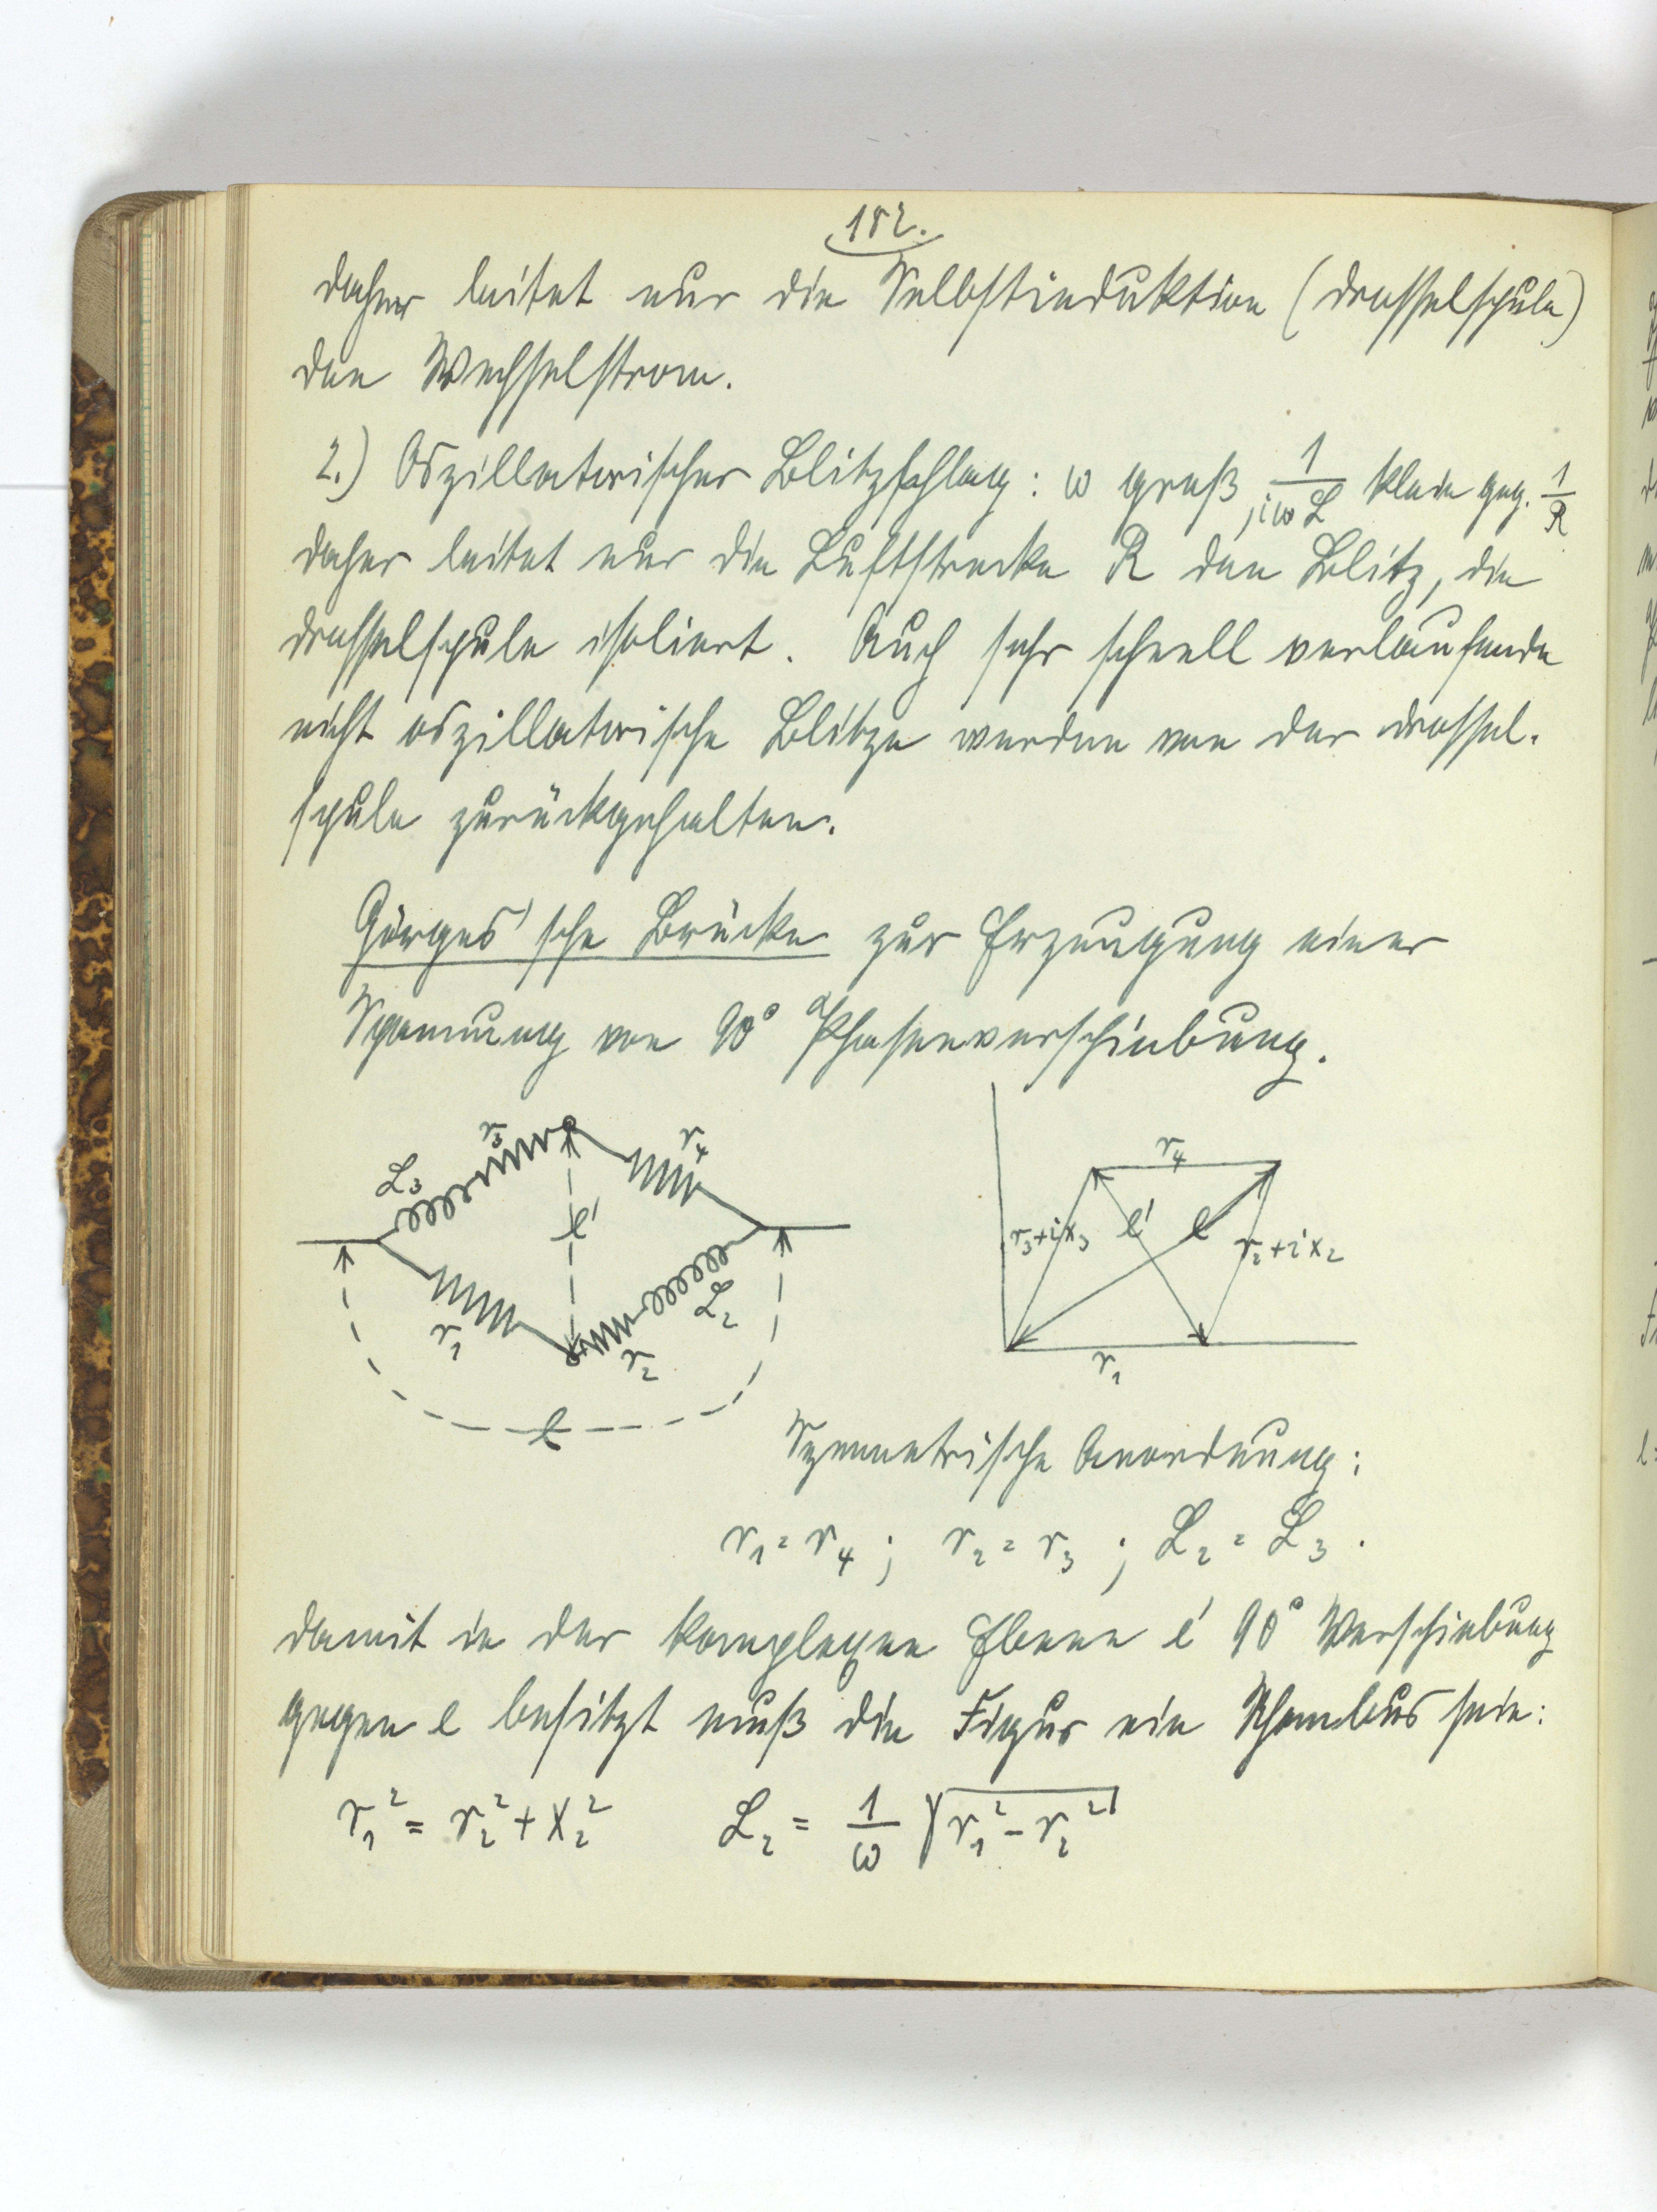 182.
daher leitet nur die Selbstinduktion (Drosselspule)
den Wechselstrom.
2.) Oszillatorischer Blitzschlag: ω groß, 1/iωL klein geg. 1/R
daher leitet nur die Luftstrecke R den Blitz, die
Drosselspule isoliert. Auch sehr schnell verlaufende
nicht oszillatorische Blitze werden von der Drossel-
spule zurückgehalten.
Görges'sche Brücke zur Erzeugung einer
Spannung von 90° Phasenverschiebung.
L₃ r₃ r₄ e' r₁ r₂ L₂ e
r₄ r₃+ix₃ e' e r₂+ix₂ r₁
Symmetrische Anordnung:
r₁ = r₄ ; r₂ = r₃ ; L₂ = L₃ .
damit in der komplexen Ebene e' 90° Verschiebung
gegen e besitzt muß die Figur ein Rhombus sein:
r₁² = r₂² + x₂² L₂ = 1/ω √(r₁² - r₂²)